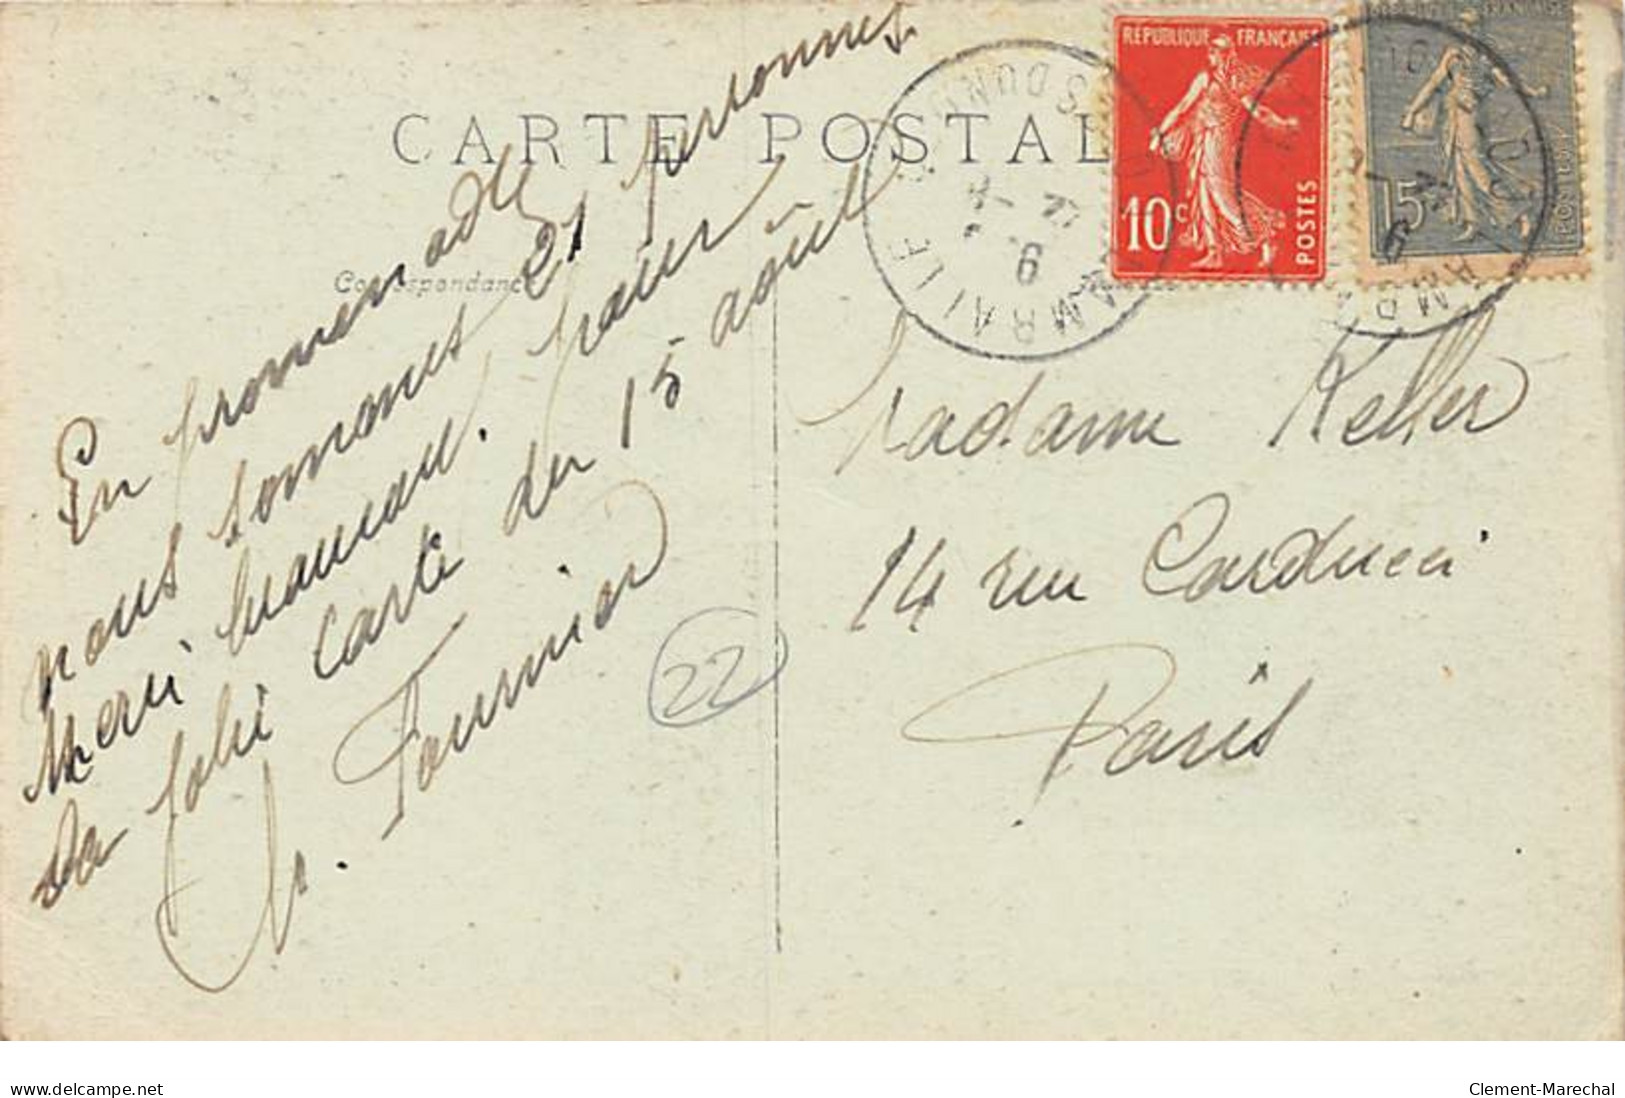 CARTE POSTALE
Correspondance
En promenade
nous sommes 21 personnes.
Merci beaucoup. pour
la jolie carte du 15 août
Fournier
22
REPUBLIQUE FRANÇAISE
10c
POSTES
FRANÇAISE
15
Madame Keller
14 rue Carducci
Paris
www.delcampe.net
Clement-Marechal